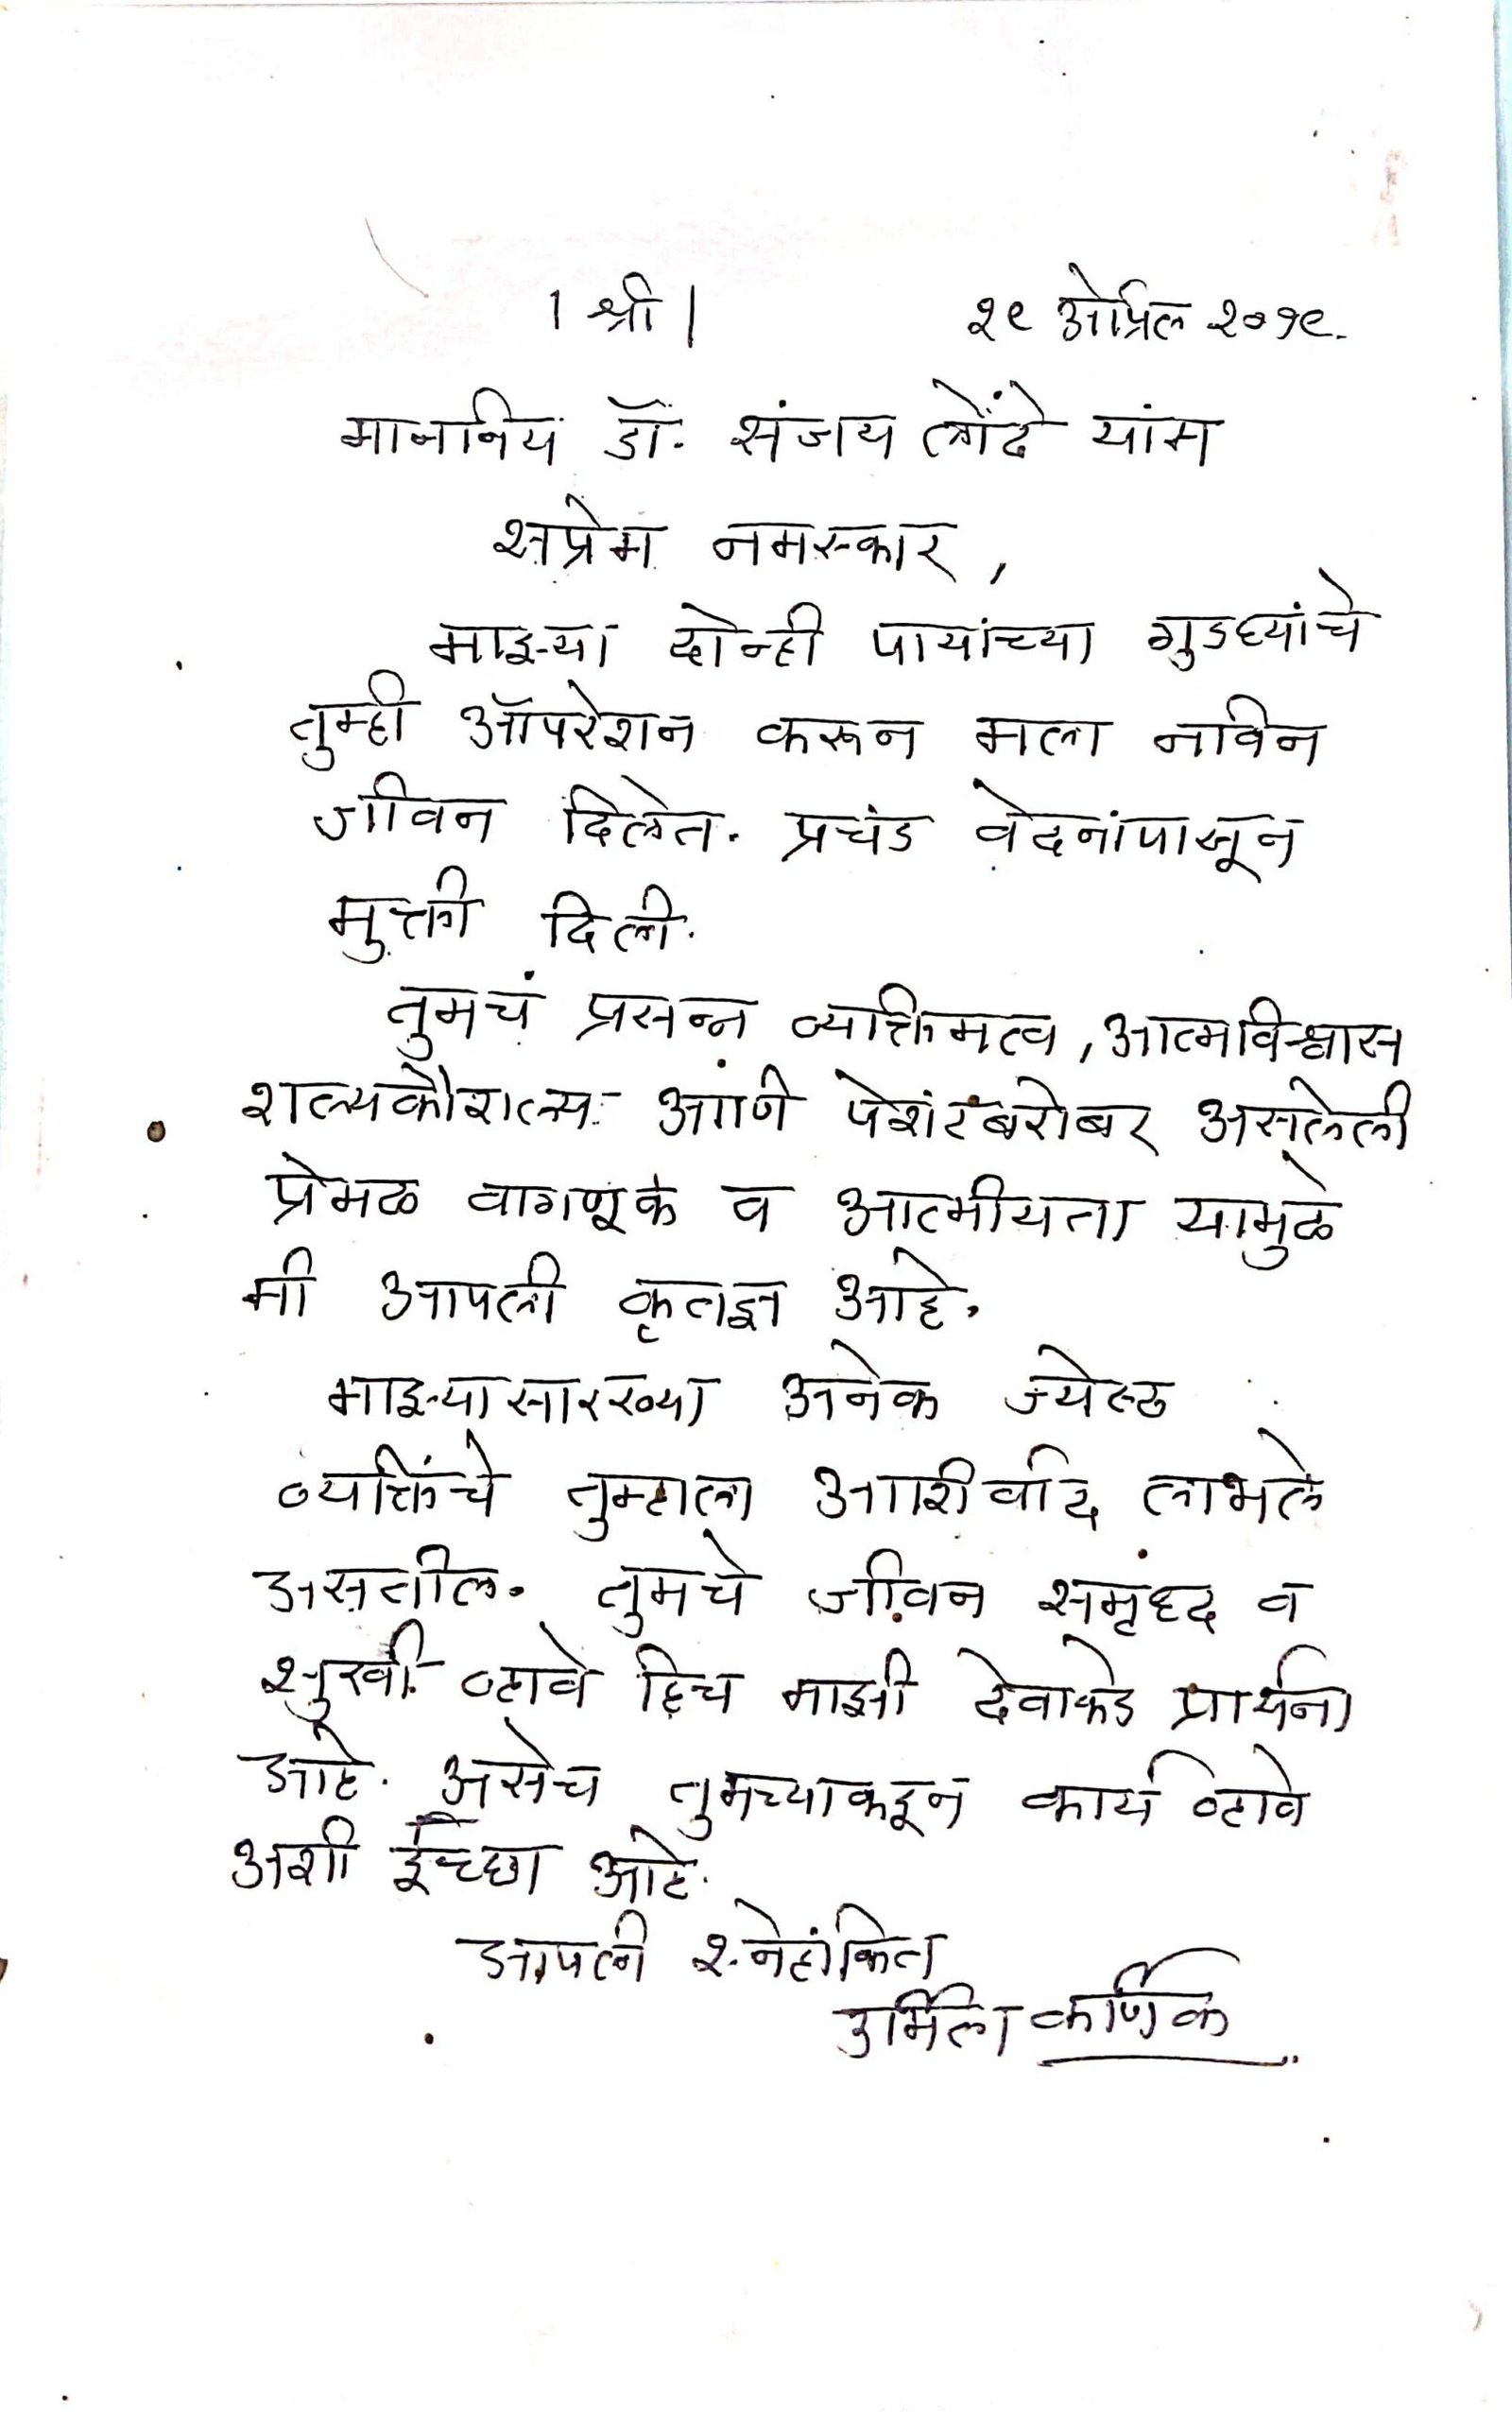 । श्री । २९ ओप्रिल २०१९.
माननिय डॉ. संजय लोंढे यांस
सप्रेम नमस्कार,
माझ्या दोन्ही पायांच्या गुडघ्यांचे
तुम्ही ऑपरेशन करून मला नविन
जीवन दिलेत. प्रचंड वेदनांपासून
मुक्ती दिली.
तुमचं प्रसन्न व्यक्तिमत्व, आत्मविश्वास
शल्यकौशल्य आणि पेशंटंबरोबर असलेली
प्रेमळ वागणूक व आत्मीयता यामुळे
मी आपली कृतज्ञ आहे.
माझ्यासारख्या अनेक ज्येस्ठ
व्यक्तिंचे तुम्हाला आशीर्वाद लाभले
असतील. तुमचे जीवन समृध्द व
सुखी व्हावे हिच माझी देवाकडे प्रार्थना
आहे. असेच तुमच्याकडून कार्य व्हावे
अशी ईच्छा आहे.
आपली स्नेहांकित
उर्मिला कर्णिक